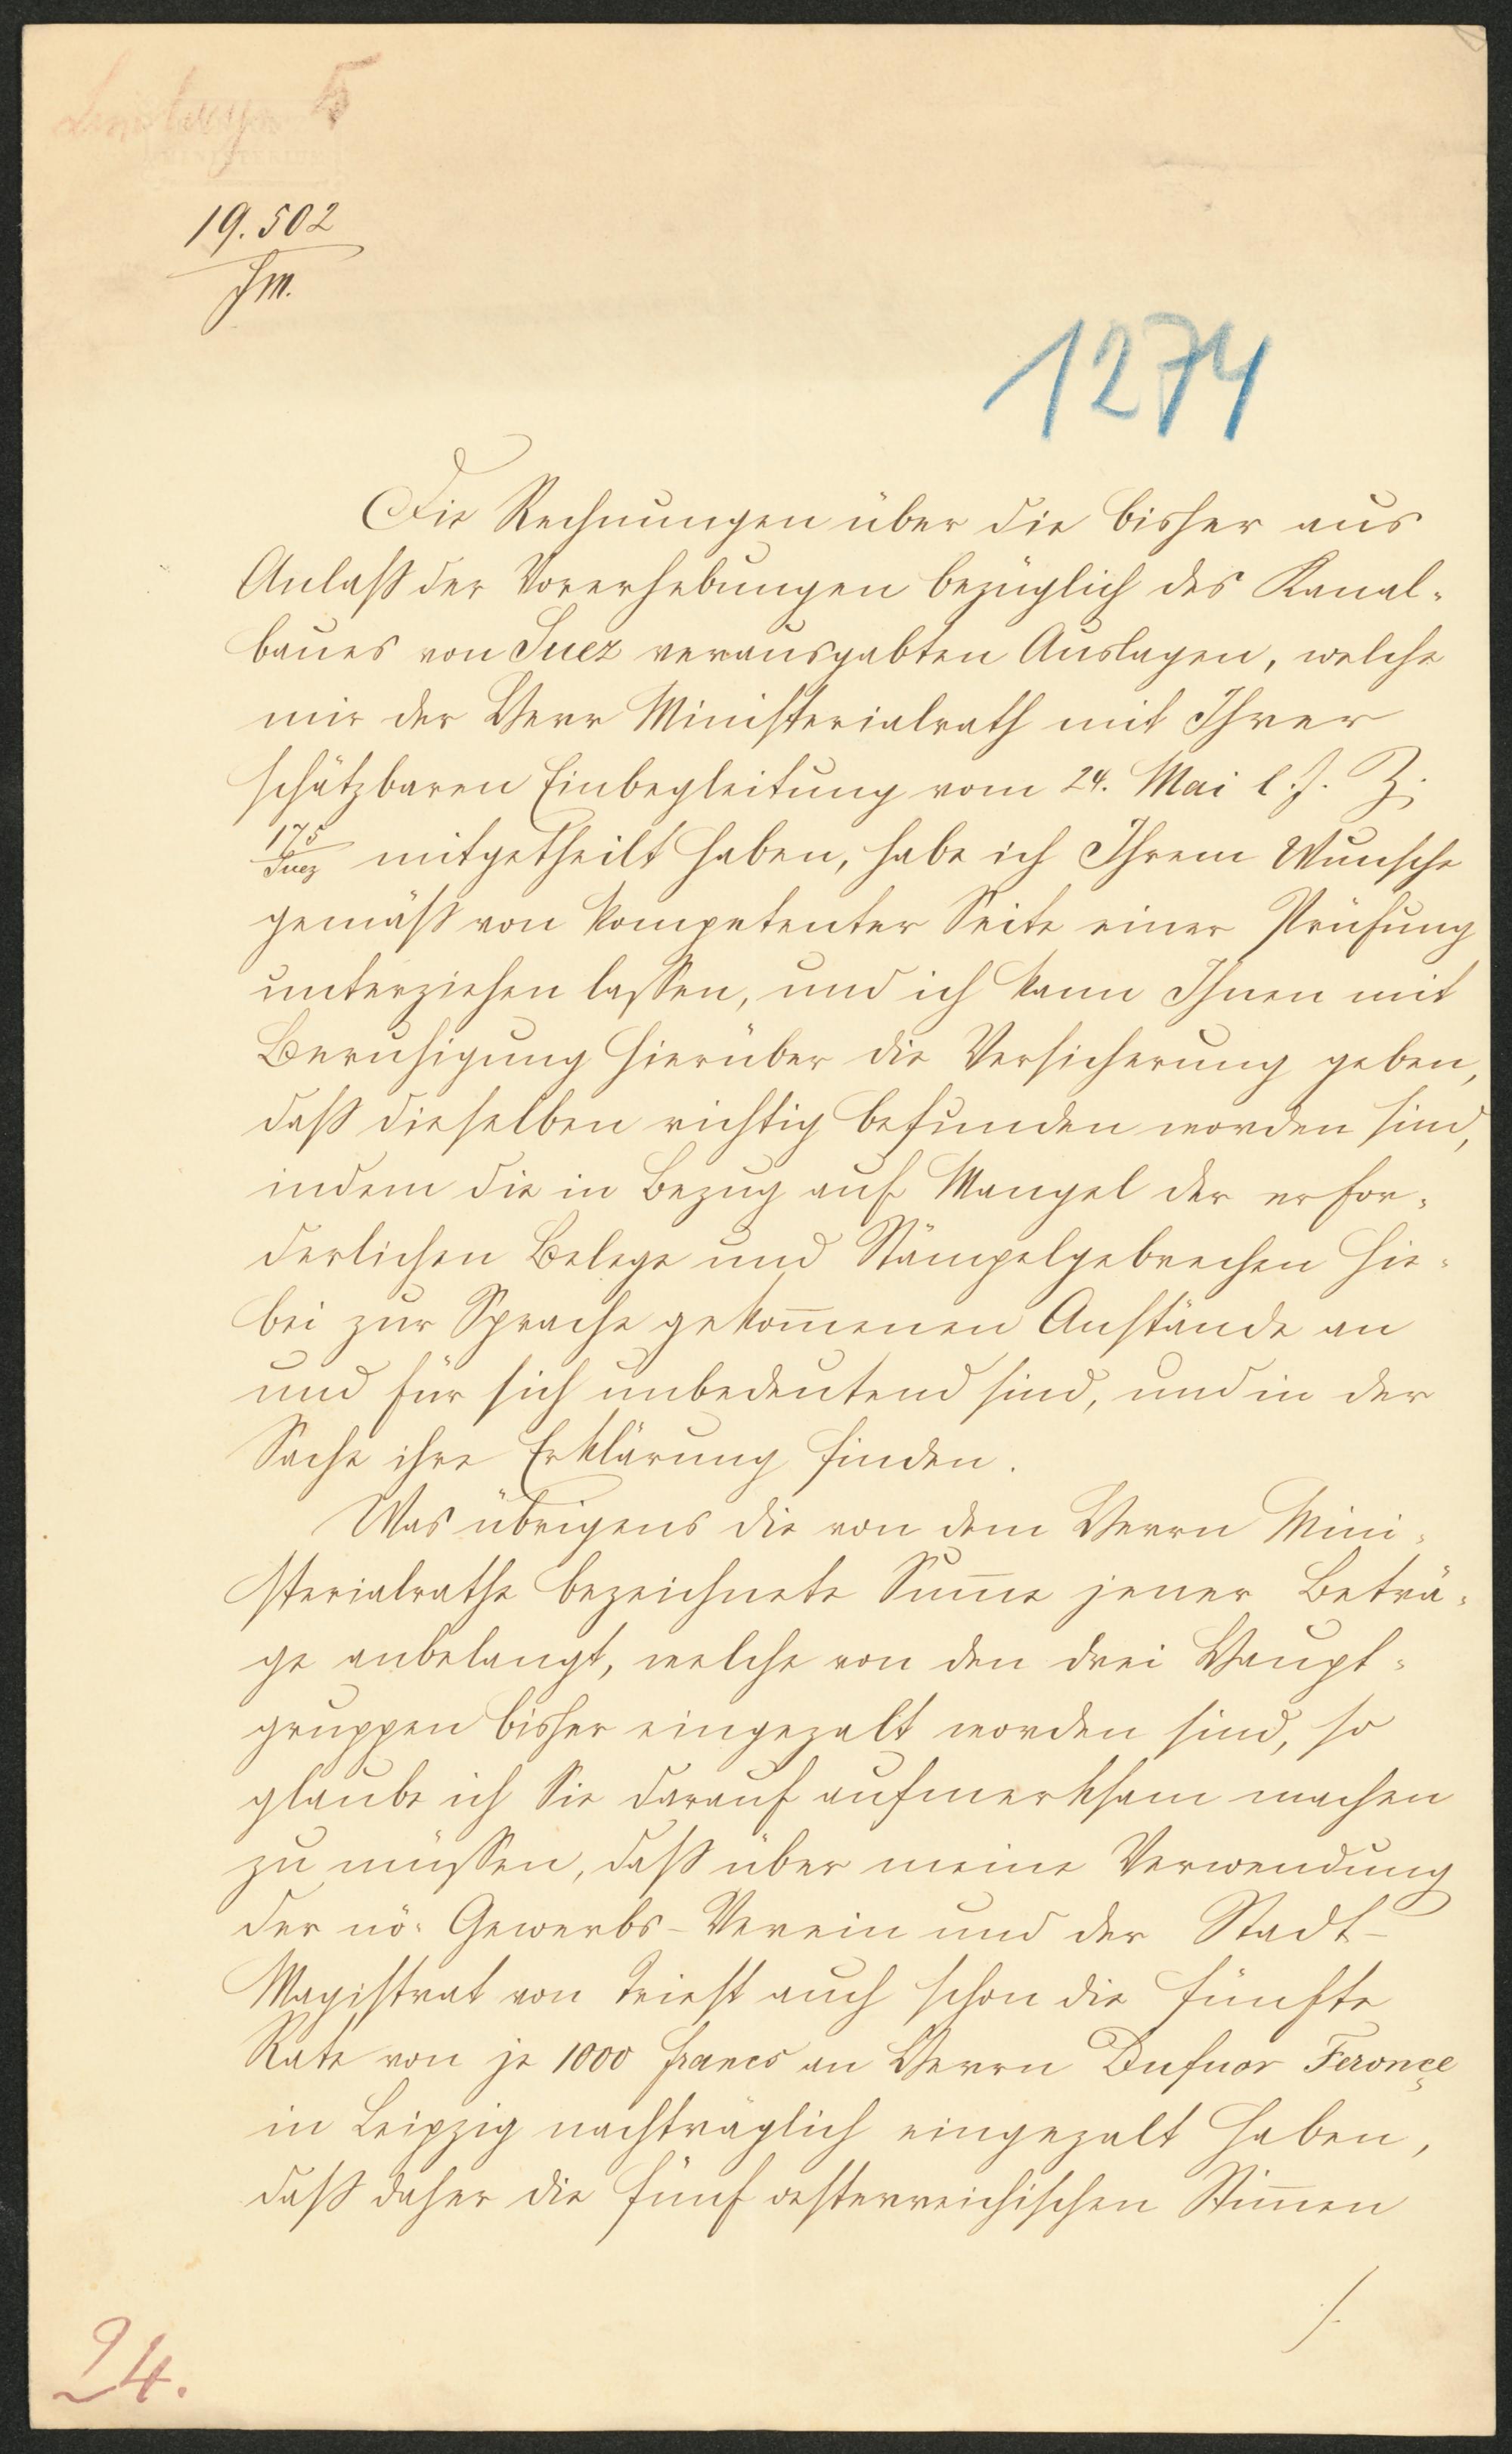 5
MINISTERIUM
19.502
1274
Die Rechnungen über die bisher aus
Anlaß der Vorerhebungen bezüglich des Kanal-
baues von Suez verausgabten Auslagen, welche
mir der Herr Ministerialrath mit Ihrer
schätzbaren Einbegleitung vom 24. Mai l. J. Z.
175/Suez mitgetheilt haben, habe ich Ihrem Wunsche
gemäß von kompetenter Seite einer Prüfung
unterziehen lassen, und ich kann Ihnen mit
Beruhigung hierüber die Versicherung geben,
daß dieselben richtig befunden worden sind,
indem die in Bezug auf Mangel der erfor-
derlichen Belege und Stämpelgebrechen hie-
bei zur Sprache gekom̄enen Anstände an
und für sich unbedeutend sind, und in der
Sache ihre Erklärung finden.
Was übrigens die von dem Herrn Mini-
sterialrathe bezeichnete Sum̄e jener Beträ-
ge anbelangt, welche von den drei Haupt-
gruppen bisher eingezalt worden sind, so
glaube ich Sie darauf aufmerksam machen
zu müssen, daß über meine Verwendung
der nö. Gewerbs-Verein und der Stadt-
Magistrat von Triest auch schon die fünfte
Rate von je 1000 francs an Herrn Dufuor Feronçe
in Leipzig nachträglich eingezalt haben,
daß daher die fünf oesterreichischen Stim̄en
./.
24.